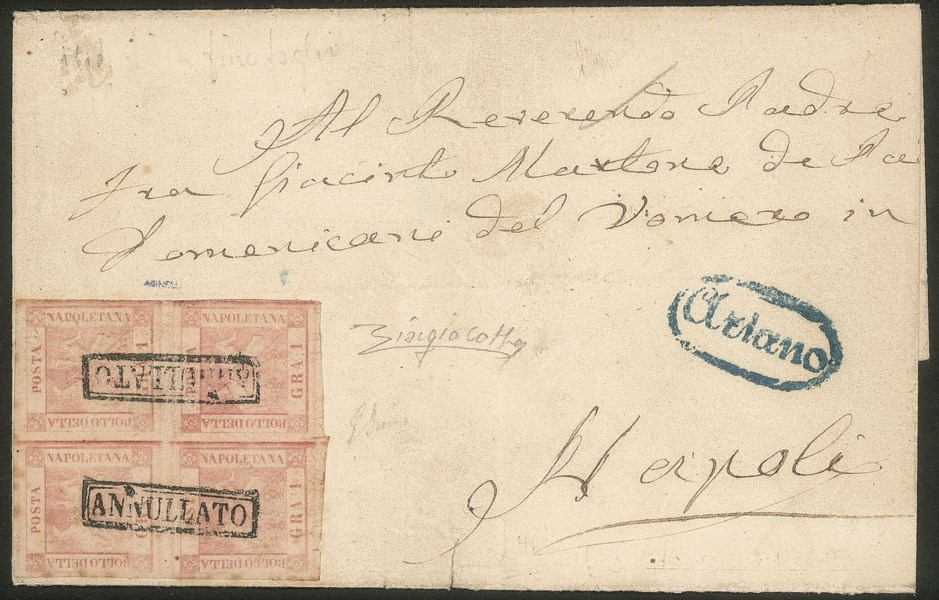 Al Reverendo Padre
Fra Giacinto Martone de Pa
Domenicani del Vomero in
Napoli
Ariano
NAPOLETANA NAPOLETANA
POSTA GRA. 1 POSTA GRA. 1
BOLLO DELLA BOLLO DELLA
ANNULLATO
NAPOLETANA NAPOLETANA
POSTA GRA. 1 POSTA GRA. 1
BOLLO DELLA BOLLO DELLA
ANNULLATO